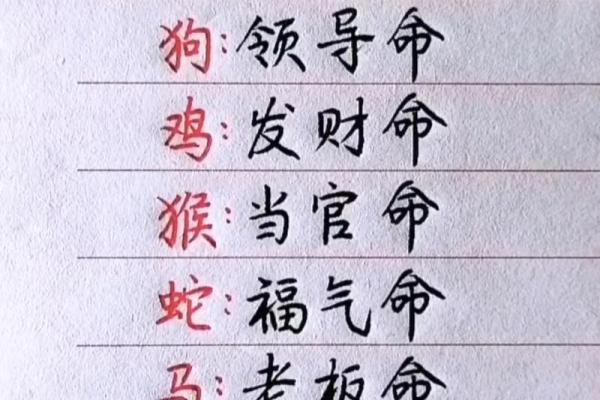 狗:领导命
鸡:发财命
猴:当官命
蛇:福气命
马:老板命